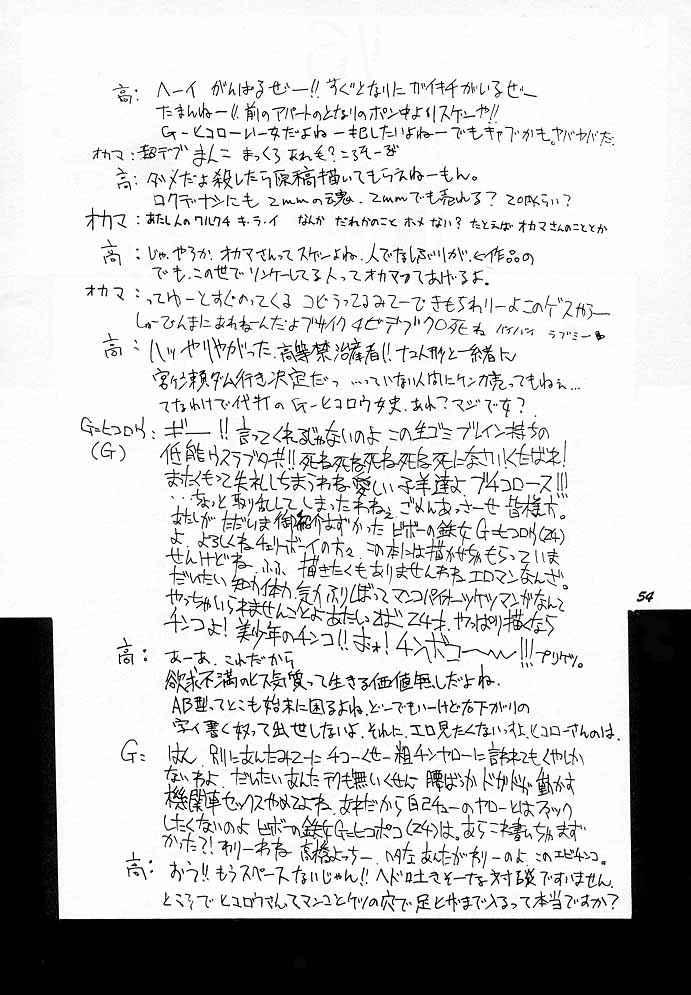 高: ヘーイ がんばるぜー!! すぐとなりに ガイキチがいるぜー
たまんねー!! 前のアパートのとなりのポン中よりスゲーや!!
G=ヒコローいい女だよねー犯したいよねーでもキャブかも。ヤバヤバだ。
オカマ: 超デブ まんこ まっくろ あれも? ころすーぞ
高: ダメだよ殺したら原稿描いてもらえねーもん。
ロクデナシにも 2mmの魂、2mmでも売れる? 20円くらい?
オカマ: あたし人のワルクチ キ・ラ・イ なんか だれかのこと ホメ ない? たとえば オカマさんのこととか
高: じゃ、やろか、オカマさんってスゲーよね、人でなしぶりが、←作品の
でも、この世でソンケーしてる人ってオカマってあげるよ。
オカマ: ってゆーとすぐのってくる コビうってるみてーで きもちわりーよこのゲスがぁー
しゅーでんまにあわねーんだよブサイク 4ビデブク〇死ね バイバイ ラブミー
高: ハッ やりやがった、高等禁治産者!! ナユ人形と一緒に
宮ヶ瀬ダム行き決定だっ …っていない人間にケンカ売ってもねぇ…
てなわけで代打の G=ヒコロウ女史、あれ? マジで女?
G=ヒコロウ: ギー!! 言ってくれるじゃないのよ この生ゴミブレイン持ちの
(G) 低能ウスラブタ共!! 死ね死ね死ね死ね死になさいくたばれ!
まったくもって失礼しちまうわね、愛しい子羊達よ ブチコロース!!!
…ちょっと取り乱してしまったわねぇ、ごめんあっさーせ 皆様方。
あたしが ただいま御紹介あずかった ビボーの鉄女 G=ヒコロウ(24)
よ、よろしくねチェリーボーイの方々、この本には描かせちゃもらっていま
せんけどね、ふふ、描きたくもありませんわねエロマンなんざ。
だいたい 知力体力気力ふりしぼってマンコパイオーツケツマンかなんて
やっちゃいられませんことよ あたいはだ 24才、やっぱり描くなら
チンコよ! 美少年のチンコ!! まぁ! チンポコ〜〜!!! プリケツ。
高: あーあ、これだから
欲求不満のヒス気質って生きる価値無しだよね、
AB型ってとこも始末に困るよね、どーでもいーけど右下がりの
字ィ書く奴って出世しないよ、それに、エロ見たくないっすよ、ヒコローさんのは、
G= はん、別にあんたみてーに チコーくせー粗チンヤローに言われてもくやしか
ないわよ だいたいあんた テクも無いくせに 腰ばっか ドカドカ 動かす
機関車セックスやめてよね、あれだから自己チューのヤローとはファック
したくないのよ ビボーの鉄女G=ヒコポコ(24)は。あら これ書いちゃまず
かった?! わりーわね 高橋よっちー、マタな、あんたがわりーのよ、このエビチンコ。
高: おう!! もうスペースないじゃん!! ヘドロ吐きそーな対談ですいません、
ところで ヒコロウさんてマンコとケツの穴で 足とかまで入るって本当ですか?
54